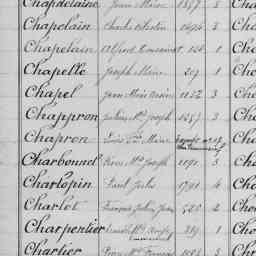 Chapdelaine Jean Marie 1857 3 Cho
Chapelain Charles Célestin 1494 3 Cho
Chapelain Alfred Toussaint 166 1 Cho
Chapelle Joseph Marie 207 1 Cho
Chapel Jean Marie 1152 3 Cho
Chappron Julien Joseph 1657 3 Cho
Chapron Louis Marie Cho
Charbonnel Pierre Joseph 1191 3 Cho
Charlopin Paul Jules 1791 4 Cho
Charlot François Julien Jean 520 2 Cho
Charpentier 219 1 Cho
Chartier Cho